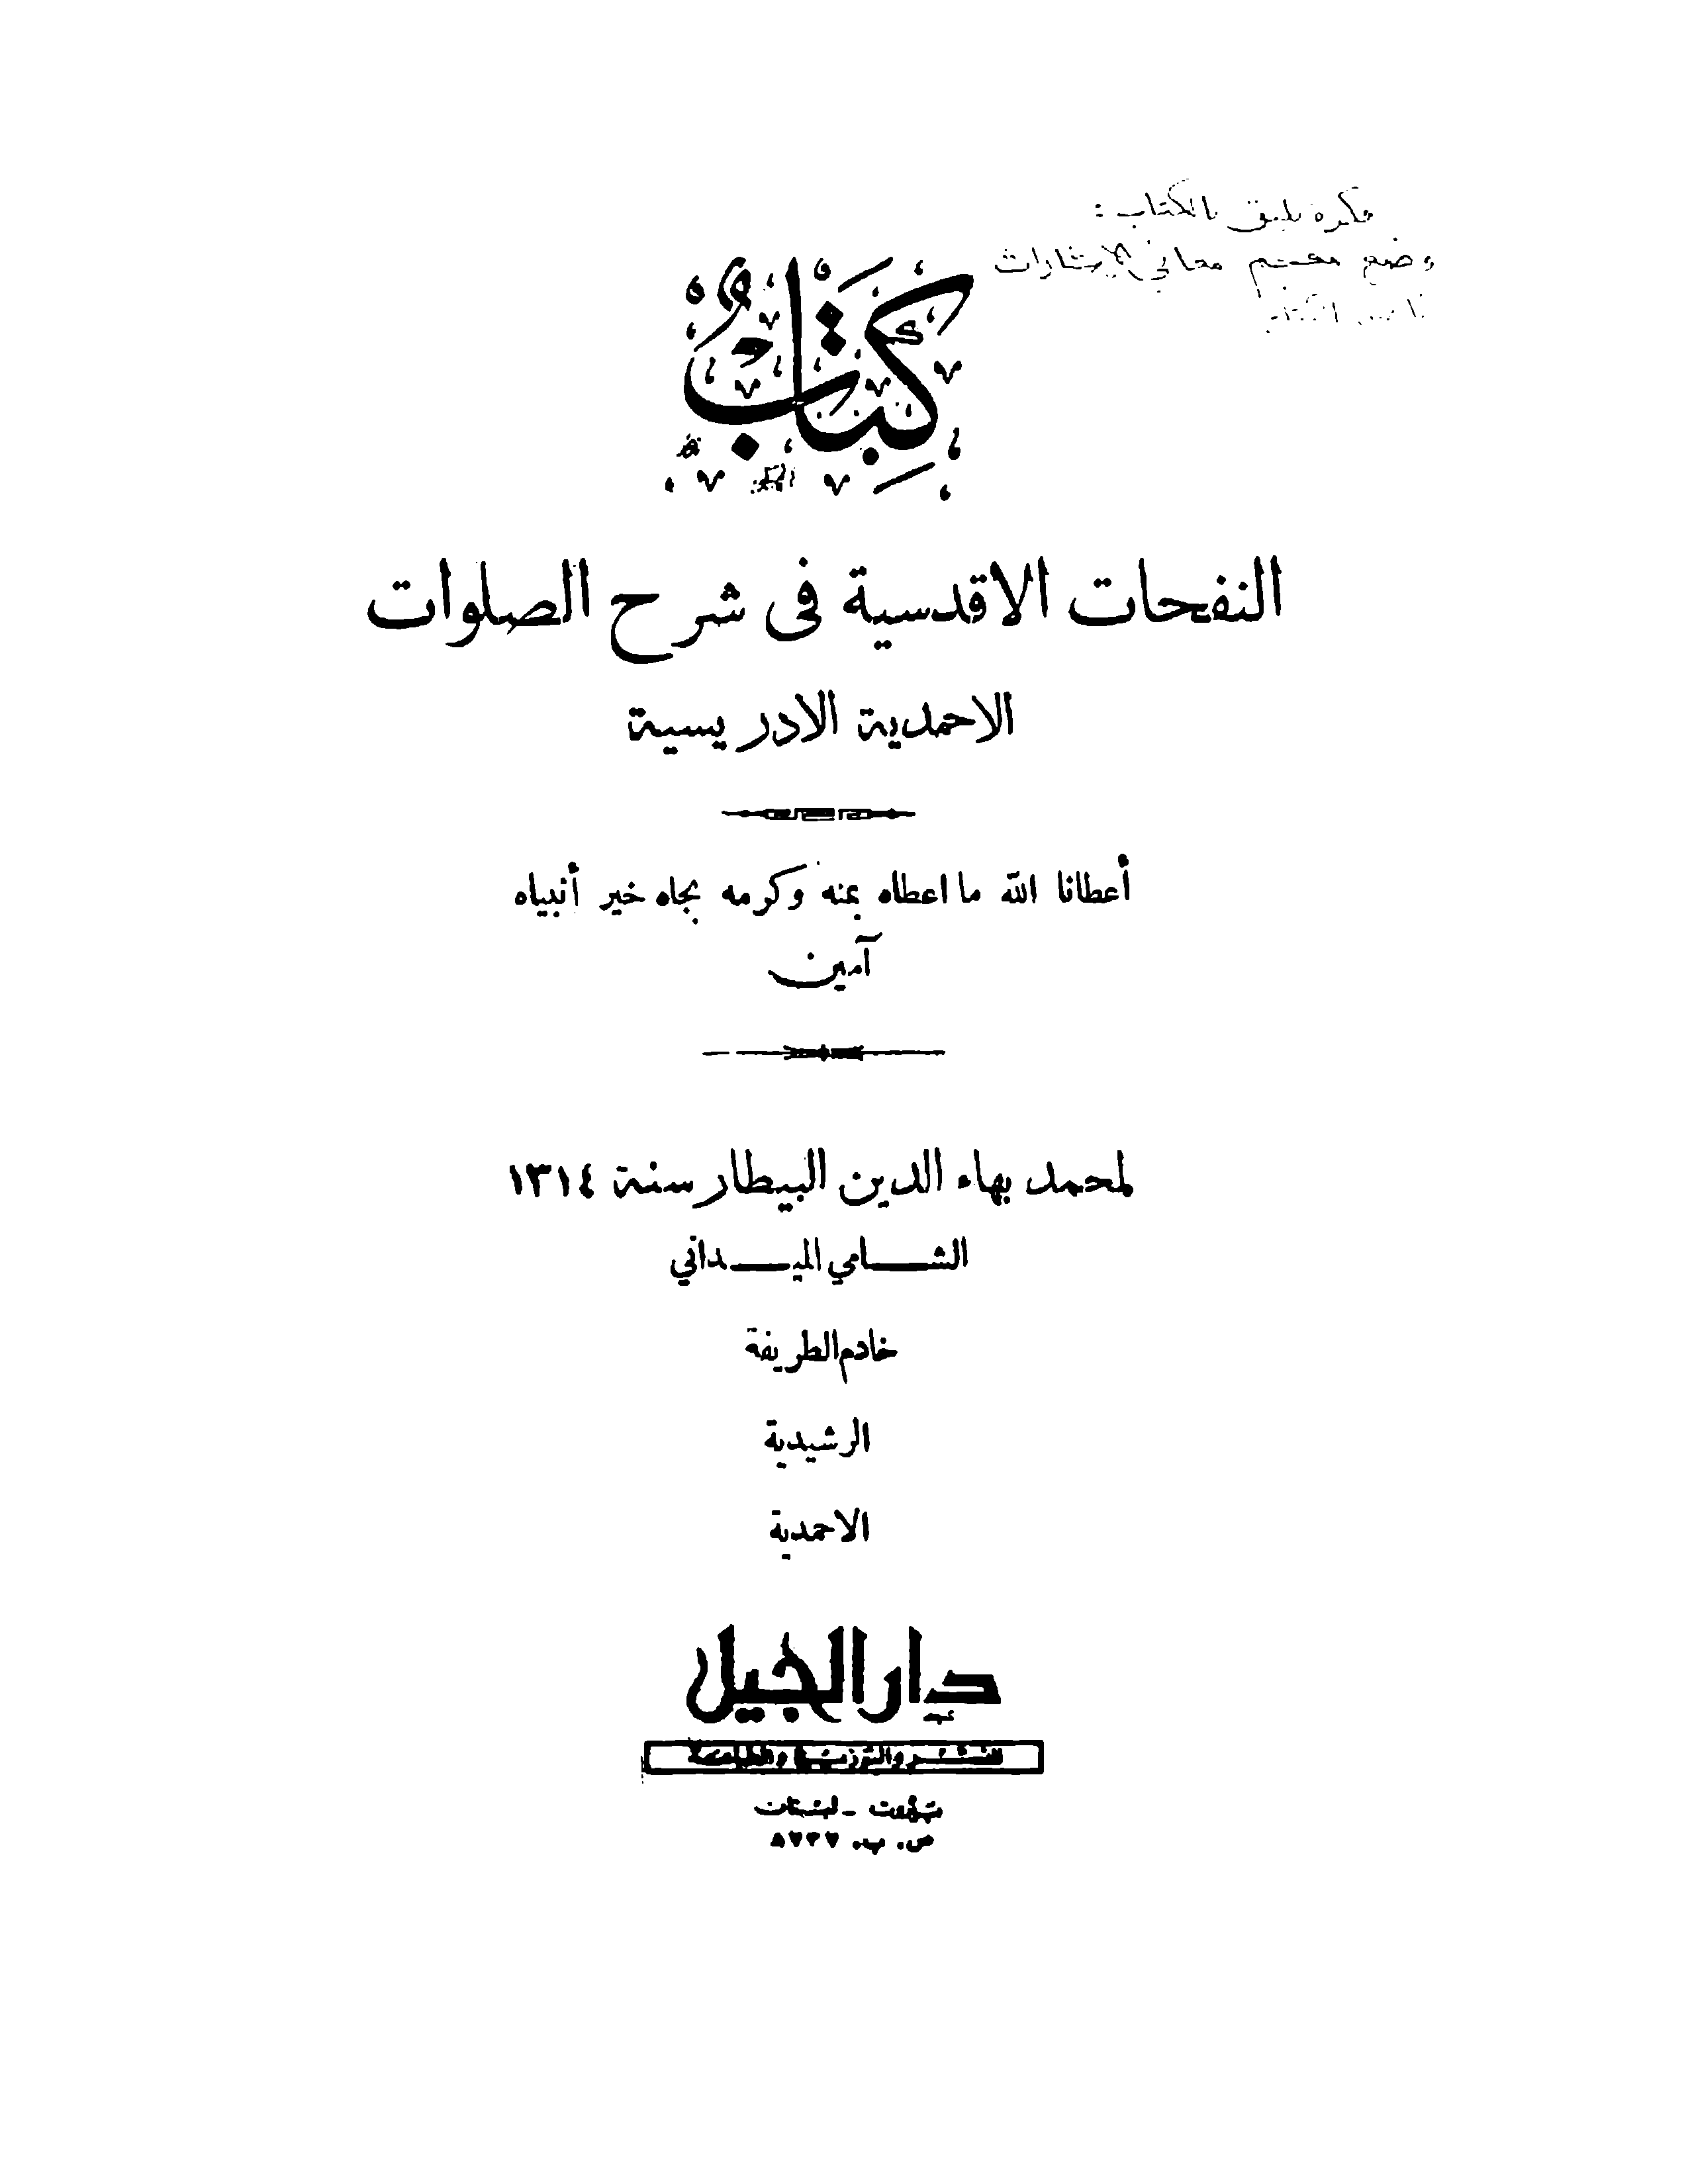 فكرة تليق بالكتاب :
وضع معجم معاني الإشارات
كتاب
النفحات الاقدسية فى شرح الصلوات
الاحمدية الادريسية
أعطانا الله ما اعطاه بمنه وكرمه بجاه خير أنبياه
آمين
لمحمد بهاء الدين البيطار سنة ١٣١٤
الشامي الميداني
خادم الطريقة
الرشيدية
الاحمدية
دار الجيل
للنشر والتوزيع والطباعة
بيروت - لبنان
ص. ب. ٨٧٣٧